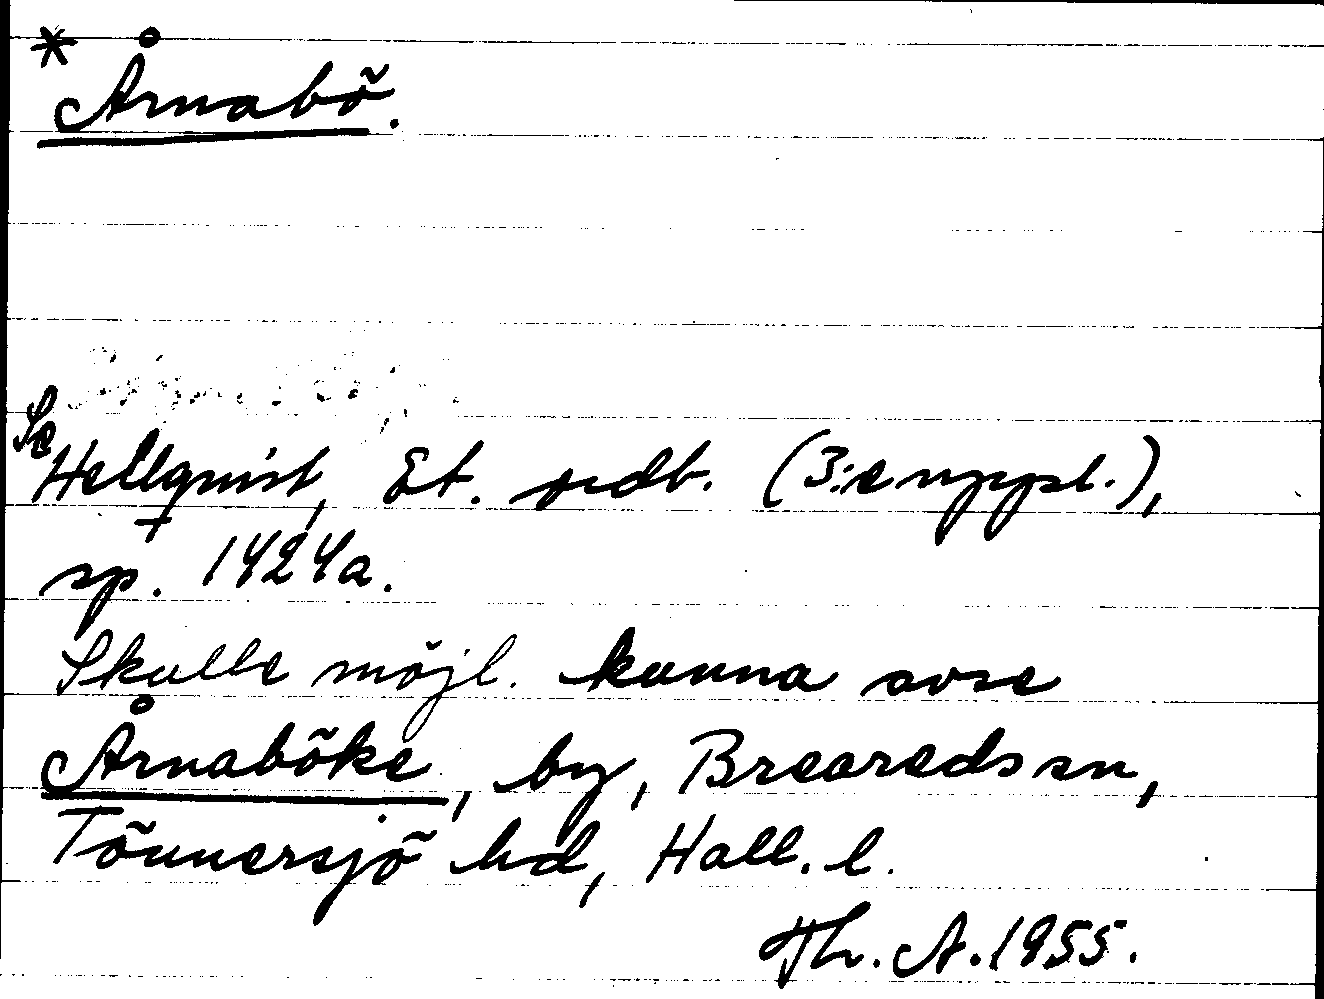 * Årnabö.
Se
Hellquist, Et. ordb. (3:e uppl.),
sp. 1424a.
Skulle möjl. kunna avse
Årnaböke, by, Breareds sn,
Tönnersjö hd, Hall. l.
Th. A. 1955.